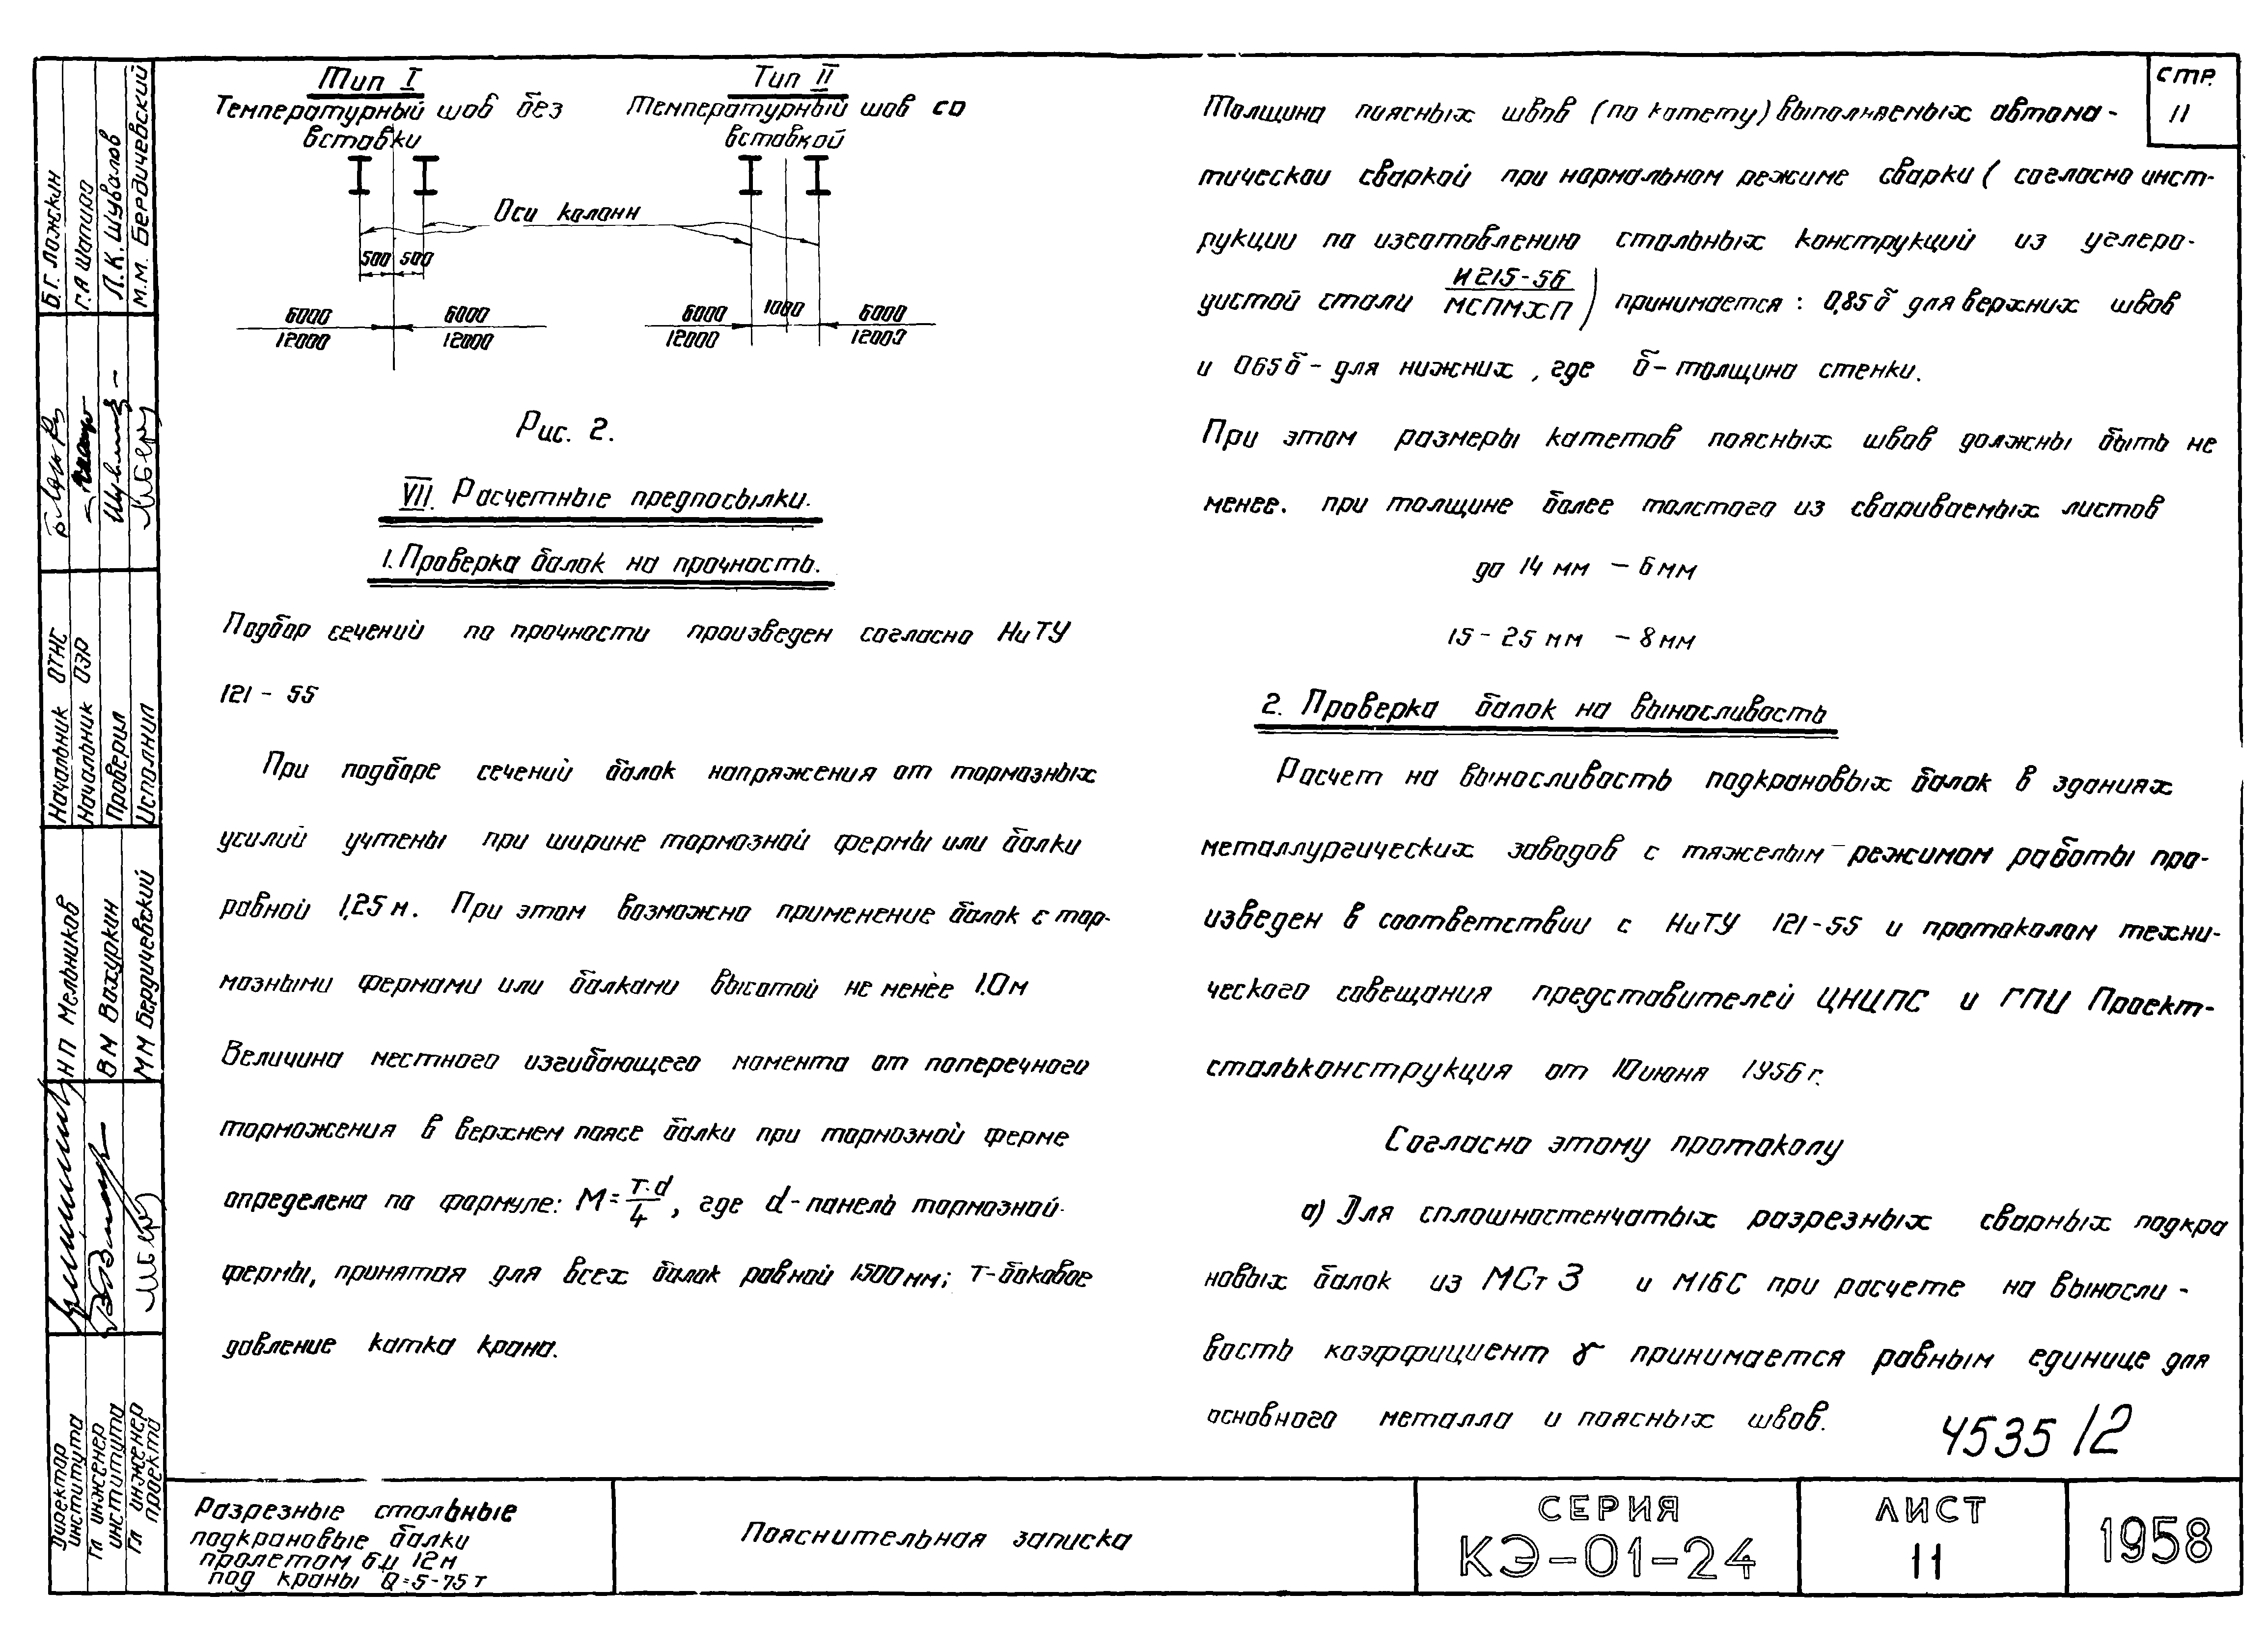 Тип I
Температурный шов без
вставки
Тип II
Температурный шов со
вставкой
Оси колонн
500 500
6000
12000
6000
12000
6000
12000
1000
6000
12000
Рис. 2.
VII. Расчетные предпосылки.
1. Проверка балок на прочность.
Подбор сечений по прочности произведен согласно НиТУ
121-55
При подборе сечений балок напряжения от тормозных
усилий учтены при ширине тормозной фермы или балки
равной 1,25м. При этом возможно применение балок с тор-
мозными фермами или балками высотой не менее 1.0м
Величина местного изгибающего момента от поперечного
торможения в верхнем поясе балки при тормозной ферме
определена по формуле: M=T·d/4, где d-панель тормозной
фермы, принятая для всех балок равной 1500мм; Т-боковое
давление катка крана.
стр.
11
Толщина поясных швов (по катету) выполняемых автома-
тической сваркой при нормальном режиме сварки (согласно инст-
рукции по изготовлению стальных конструкций из углеро-
дистой стали И215-56/МСПМХП) принимается: 0,85б для верхних швов
и 065б-для нижних, где б-толщина стенки.
При этом размеры катетов поясных швов должны быть не
менее. при толщине более толстого из свариваемых листов
до 14 мм - 6мм
15-25 мм - 8мм
2. Проверка балок на выносливость
Расчет на выносливость подкрановых балок в зданиях
металлургических заводов с тяжелым режимом работы про-
изведен в соответствии с НиТУ 121-55 и протоколом техни-
ческого совещания представителей ЦНИПС и ГПИ Проект-
стальконструкция от 10июня 1956г.
Согласно этому протоколу
а) Для сплошностенчатых разрезных сварных подкра
новых балок из МСт3 и М16С при расчете на выносли-
вость коэффициент γ принимается равным единице для
основного металла и поясных швов.
4535/2
Б.Г. Ложкин
Г.А Шапиро
Л.К. Шувалов
М.М. Бердичевский
Начальник ОТНС
Начальник ОЭР
Проверил
Исполнил
Н П Мельников
В М Вахуркин
М М Бердичевский
Директор института
Гл инженер института
Гл инженер проекта
Разрезные стальные
подкрановые балки
пролетом 6и 12м
под краны Q=5-75т
Пояснительная записка
СЕРИЯ
КЭ-01-24
ЛИСТ
11
1958